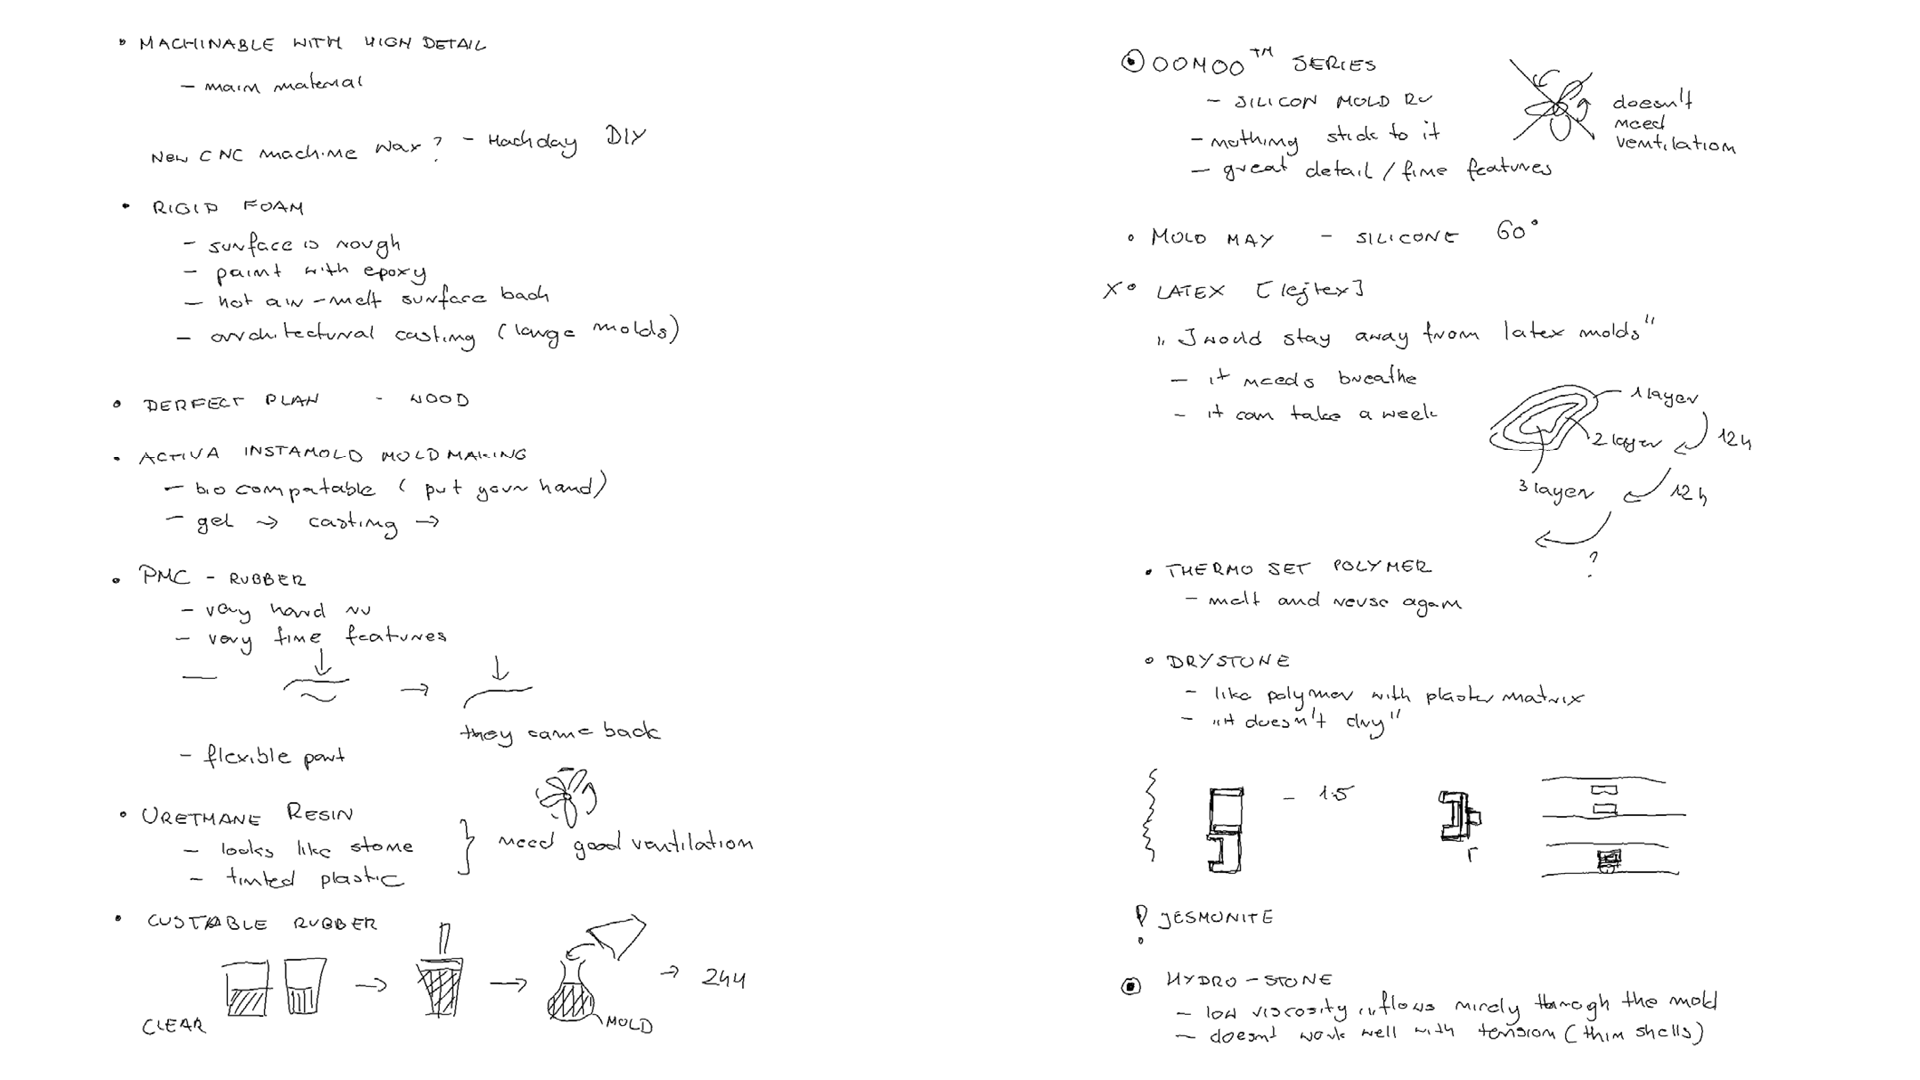 • MACHINABLE WITH HIGH DETAIL
- main material
New CNC machine wax? - Hackday DIY
• RIGID FOAM
- surface is rough
- paint with epoxy
- hot air - melt surface back
- architectural casting (large molds)
• PERFECT PLAN - WOOD
• ACTIVA INSTAMOLD MOLD MAKING
- bio compatable (put your hand)
- gel → casting →
• PMC - RUBBER
- very hard ru
- very fine features
they came back
- flexible part
• URETHANE RESIN
- looks like stone
- tinted plastic
need good ventilation
• CUSTABLE RUBBER
→ 24H
CLEAR
MOLD
OOMOO™ SERIES
- SILICON MOLD RU
- nothing stick to it
- great detail / fine features
doesn't
need
ventilation
• MOLD MAY - SILICONE 60°
X• LATEX [lejtex]
„I would stay away from latex molds"
- it needs breathe
- it can take a week
1 layer
2 layer
12h
3 layer
12h
?
• THERMO SET POLYMER
- melt and reuse again
• DRYSTONE
- like polymer with plaster matrix
- „it doesn't dry"
- 1.5
! JESMONITE
HYDRO-STONE
- low viscosity „flows nicely through the mold
- doesnt work well with tension (thin shells)